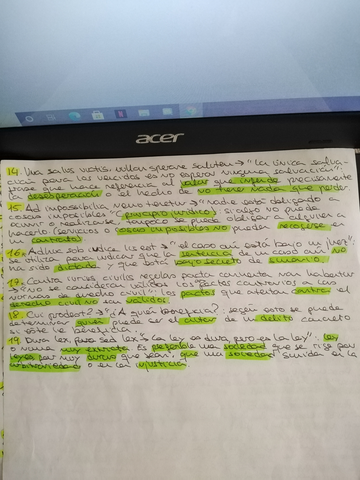 acer
14. Una salus victis, nullam sperare salutem → "La única salva-
ción para los vencidos es no esperar ninguna salvación".
Frase que hace referencia al valor que infunde precisamente
desesperación o el hecho de no tener nada que perder.
15. Ad impossibilia nemo tenetur → "Nadie está obligado a
cosas imposibles" (principio jurídico): si algo no puede
ocurrir o realizarse, tampoco se puede obligar a alguien a
hacerlo (servicios o cosas imposibles no pueden recogerse en
un contrato)
16. Adhuc sub iudice lis est → "el caso aún está bajo un juez".
utiliza para indicar que la sentencia de un caso aún no
ha sido dictada y que está bajo secreto de sumario.
17. Contra iuris civilis regulas pacta conventa non habentur
se consideran válidos los pactos contrarios a las
normas de derecho civil: los pactos que atentan contra el
derecho civil no son válidos.
18. Cui prodest? → "¿A quién beneficia?": según esto se puede
determinar quién puede ser el autor de un delito concreto
si éste le beneficia.
19. Dura lex, sed lex → "La ley es dura, pero es la ley":
o norma muy estricta. Es preferible una sociedad que se rige por
leyes por muy duras que sean, que una sociedad sumida en la
arbitrariedad o en la injusticia.